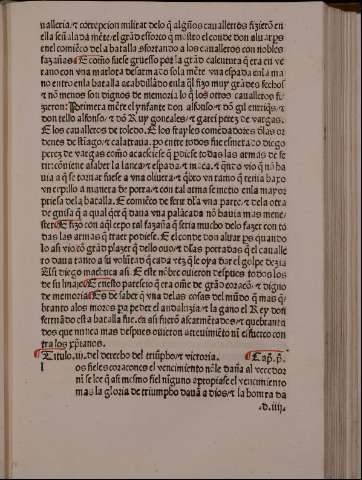 ualleria/ τ correpcion militar delo q̃ algũos caualleros fizierõ en
ella señalada mẽte: el grãd esforço q̃ mostro el conde don aluar ps
enel comiẽço dela batalla esforçando a los caualleros con nobles
fazañas. E como fuese gruesso por la grãd calentura q̃ era en ve
rano con vna marlota desarmado sola mẽte vna espada enla ma
no entro enla batalla acabdillando enla q̃l fizo muy grãdes fechos
τ nõ menos son dignos de memoria lo q̃ los otros caualleros fi
zieron: Primera mẽte el ynfante don alfonso/ τ dõ gil enriq̃s/ τ
don tello alfonso/ τ dõ Ruy gonçales/ τ garci perez de vargas.
E los caualleros de toledo. E los frayles comẽdadores dlas or
denes de stiago/ τ calatraua. po entre todos fue esmerado diego
perez de vargas como acaesciese q̃ pdiese todas las armas de fe
rir: cõuiene asaber la lança τ espada/ τ maça. τ q̃ndo vio q̃ nõ ha
uia a q̃ se tornar fuese a vna oliuera/ τ q̃bro vn ramo q̃ tenia bapo
vn cepillo a manera de porra/ τ con tal arma se metio enla mayor
priesa dela batalla. E comiẽço de ferir dla vna parte/ τ dela otra
de guisa q̃ a qual q̃er q̃ daua vna palacada nõ hauia mas mene/
ster E fizo con aq̃l cepo tal fazaña q̃ seria mucho delo fazer con to
das las armas q̃ traer podiese. E el conde don aluar ps quando
lo asi vio cõ grãd plazer q̃ dello ouo/ τ dlas porradas q̃ el caualle
ro daua tanto a su volũtad q̃ cada vez q̃ le oya dar el golpe dezia
Asi diego machuca asi. E este nõbre ouieron despues todos los
de su linaje. E enesto parescio q̃ era ome de grãd coraçõ/ τ digno
de memoria. Es de saber q̃ vna delas cosas del mũdo q̃ mas q̃
branto alos moros pa perder el andaluzia/ τ la gano el Rey don
fernãdo esta batalla fue. ca asi fuerõ ascarmẽtados/ τ quebranta
dos que nunca mas despues ouieron atreuimiẽto ni esfuerço con
tra los xp̃ianos.
Titulo .iij. del derecho del triũpho/ τ victoria. Cap̃. p̃.
l os fieles coraçones el vencimiento nõ le daña al vecedor
ni se lee q̃ asi mesmo fiel ninguno apropiase el vencimiento
mas la gloria de triumpho dauã a dios/ τ la honrra da
.d.iiij.